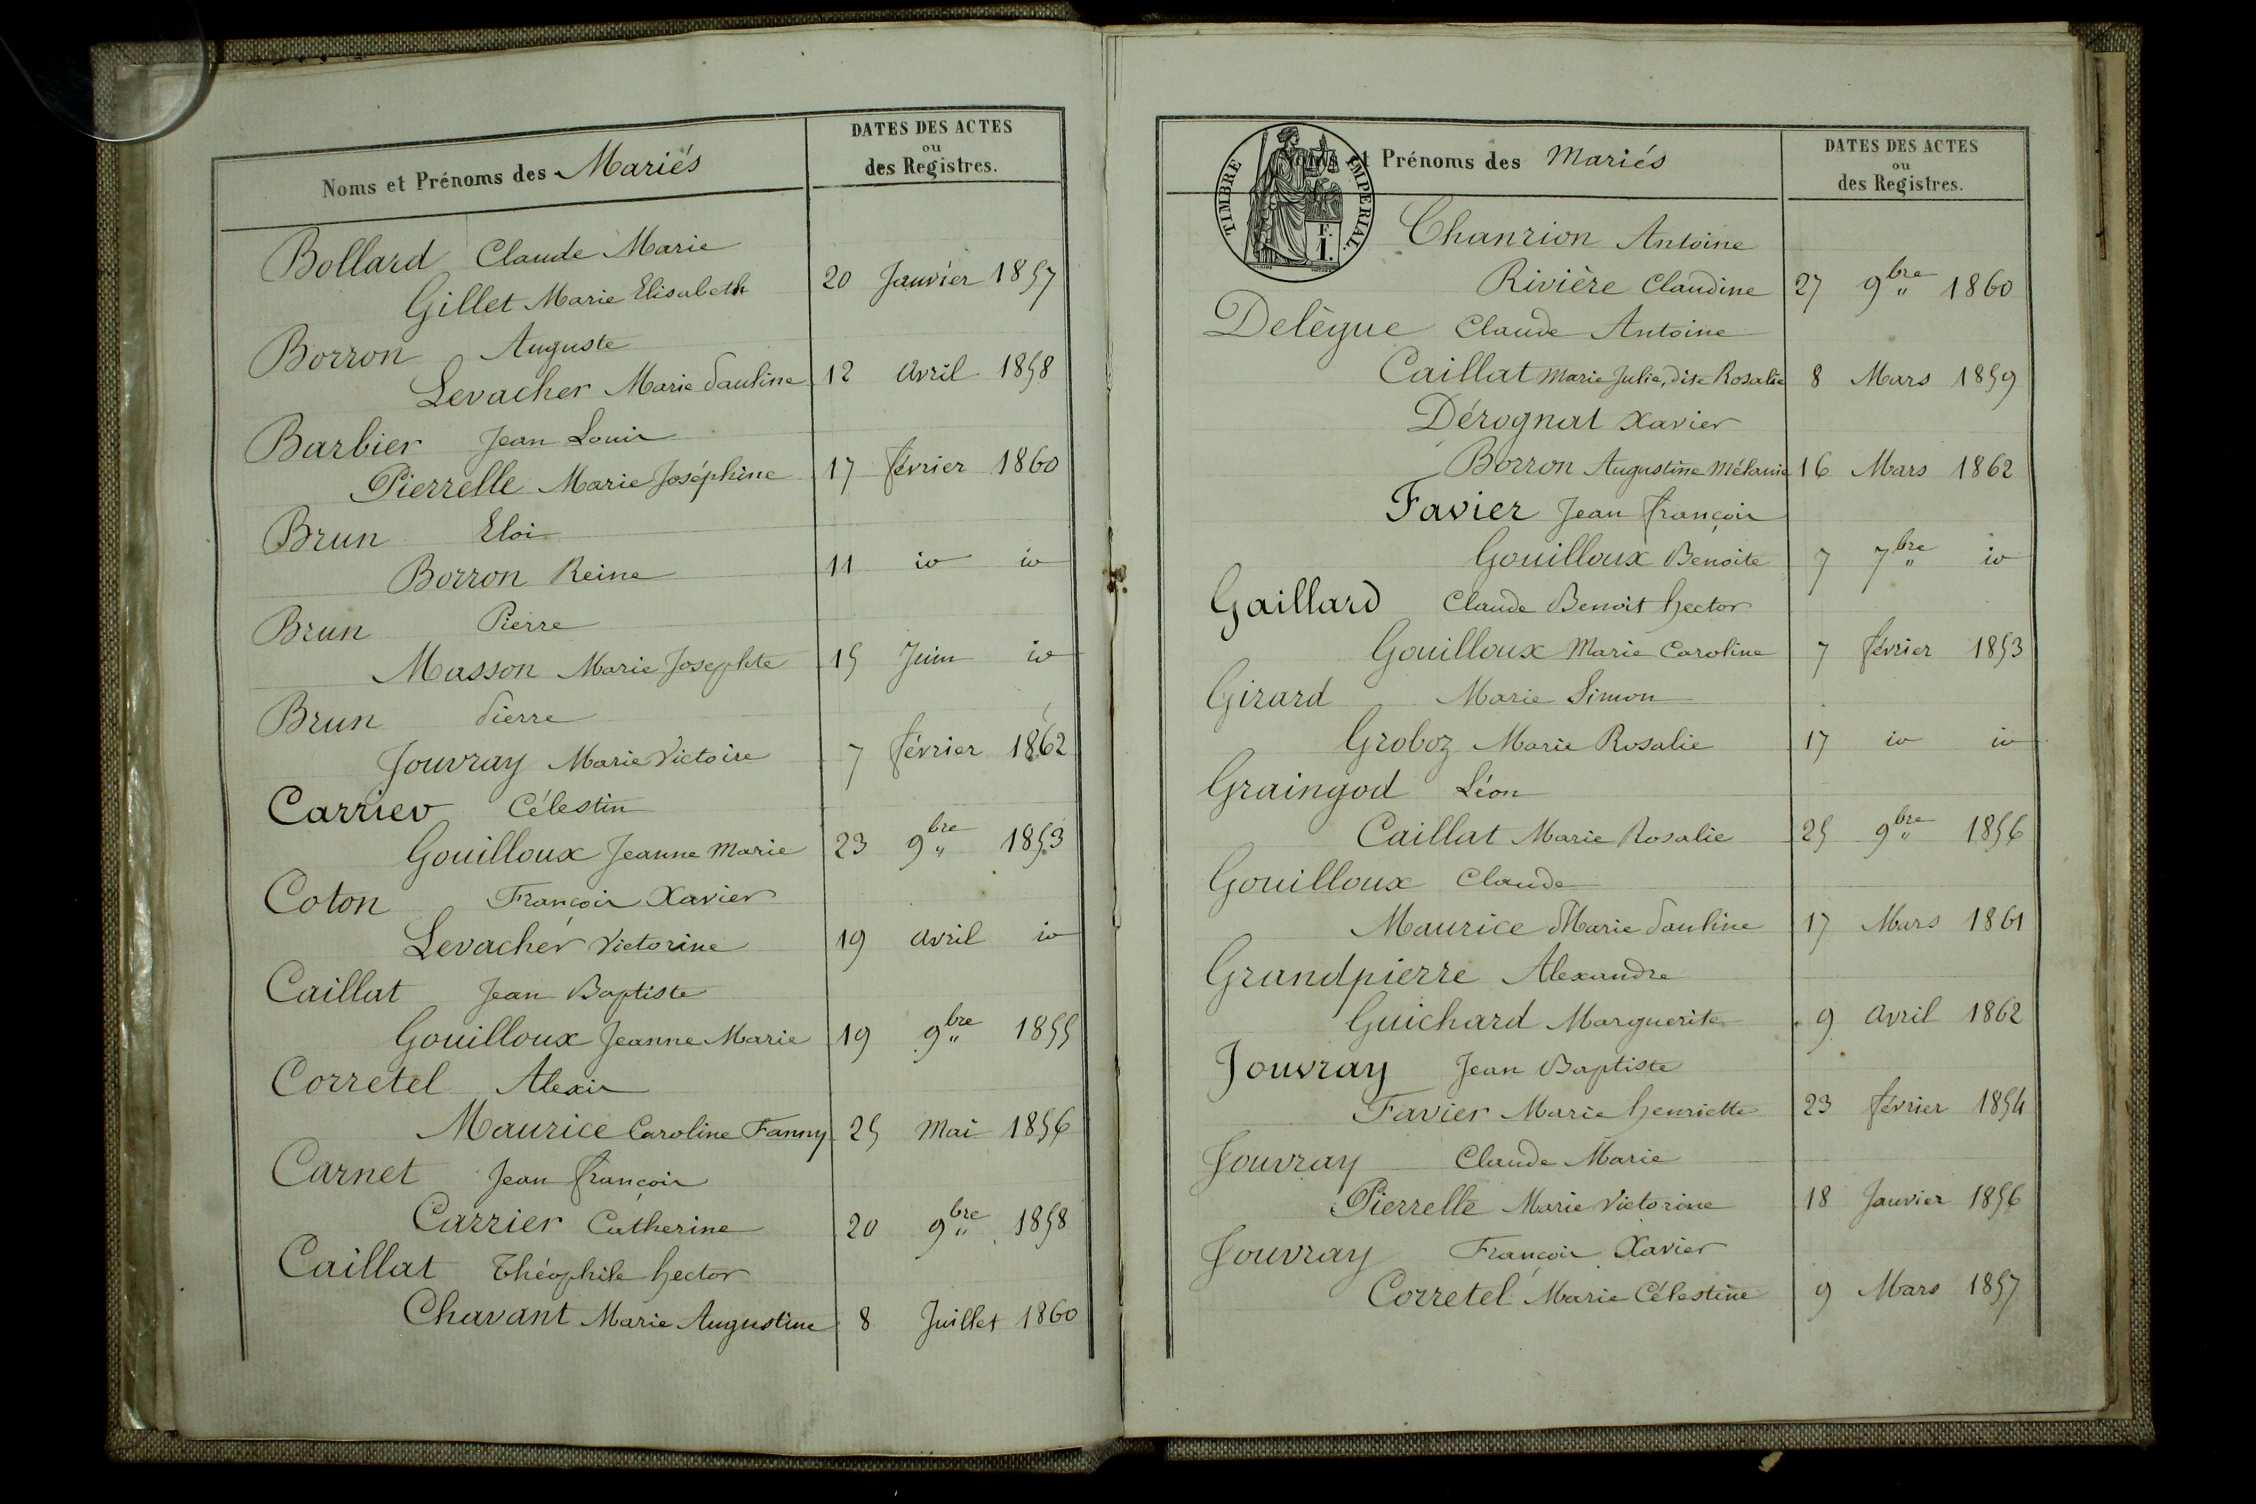 Noms et Prénoms des Mariés
DATES DES ACTES
ou
des Registres.
Bollard Claude Marie
Gillet Marie Elisabeth 20 Janvier 1857
Borron Auguste
Levacher Marie Pauline 12 avril 1858
Barbier Jean Louis
Pierrelle Marie Joséphine 17 février 1860
Brun Eloi
Borron Reine 11 id id
Brun Pierre
Masson Marie Josephte 15 Juin id
Brun Pierre
Jouvray Marie Victoire 7 février 1862
Carrier Célestin
Gouilloux Jeanne Marie 23 9bre " 1853
Coton François Xavier
Levacher Victorine 19 avril id
Caillat Jean Baptiste
Gouilloux Jeanne Marie 19 9bre " 1855
Corretel Alexis
Maurice Caroline Fanny 25 Mai 1856
Carnet Jean François
Carrier Catherine 20 9bre " 1858
Caillat Théophile hector
Chavant Marie Augustine 8 Juillet 1860
TIMBRE IMPERIAL.
F.
1.
et Prénoms des Mariés
DATES DES ACTES
ou
des Registres.
Chanrion Antoine
Rivière Claudine 27 9bre " 1860
Delègue Claude Antoine
Caillat Marie Julie, dite Rosalie 8 Mars 1859
Dérognat Xavier
Borron Augustine Mélanie 16 Mars 1862
Favier Jean François
Gouilloux Benoite 7 7bre " id
Gaillard Claude Benoit hector
Gouilloux Marie Caroline 7 février 1853
Girard Marie Simon
Groboz Marie Rosalie 17 id id
Graingod Léon
Caillat Marie Rosalie 25 9bre " 1856
Gouilloux Claude
Maurice Marie Pauline 17 Mars 1861
Grandpierre Alexandre
Guichard Marguerite 9 avril 1862
Jouvray Jean Baptiste
Favier Marie henriette 23 février 1854
Jouvray Claude Marie
Pierrelle Marie Victorine 18 Janvier 1856
Jouvray François Xavier
Corretel Marie Célestine 9 Mars 1857